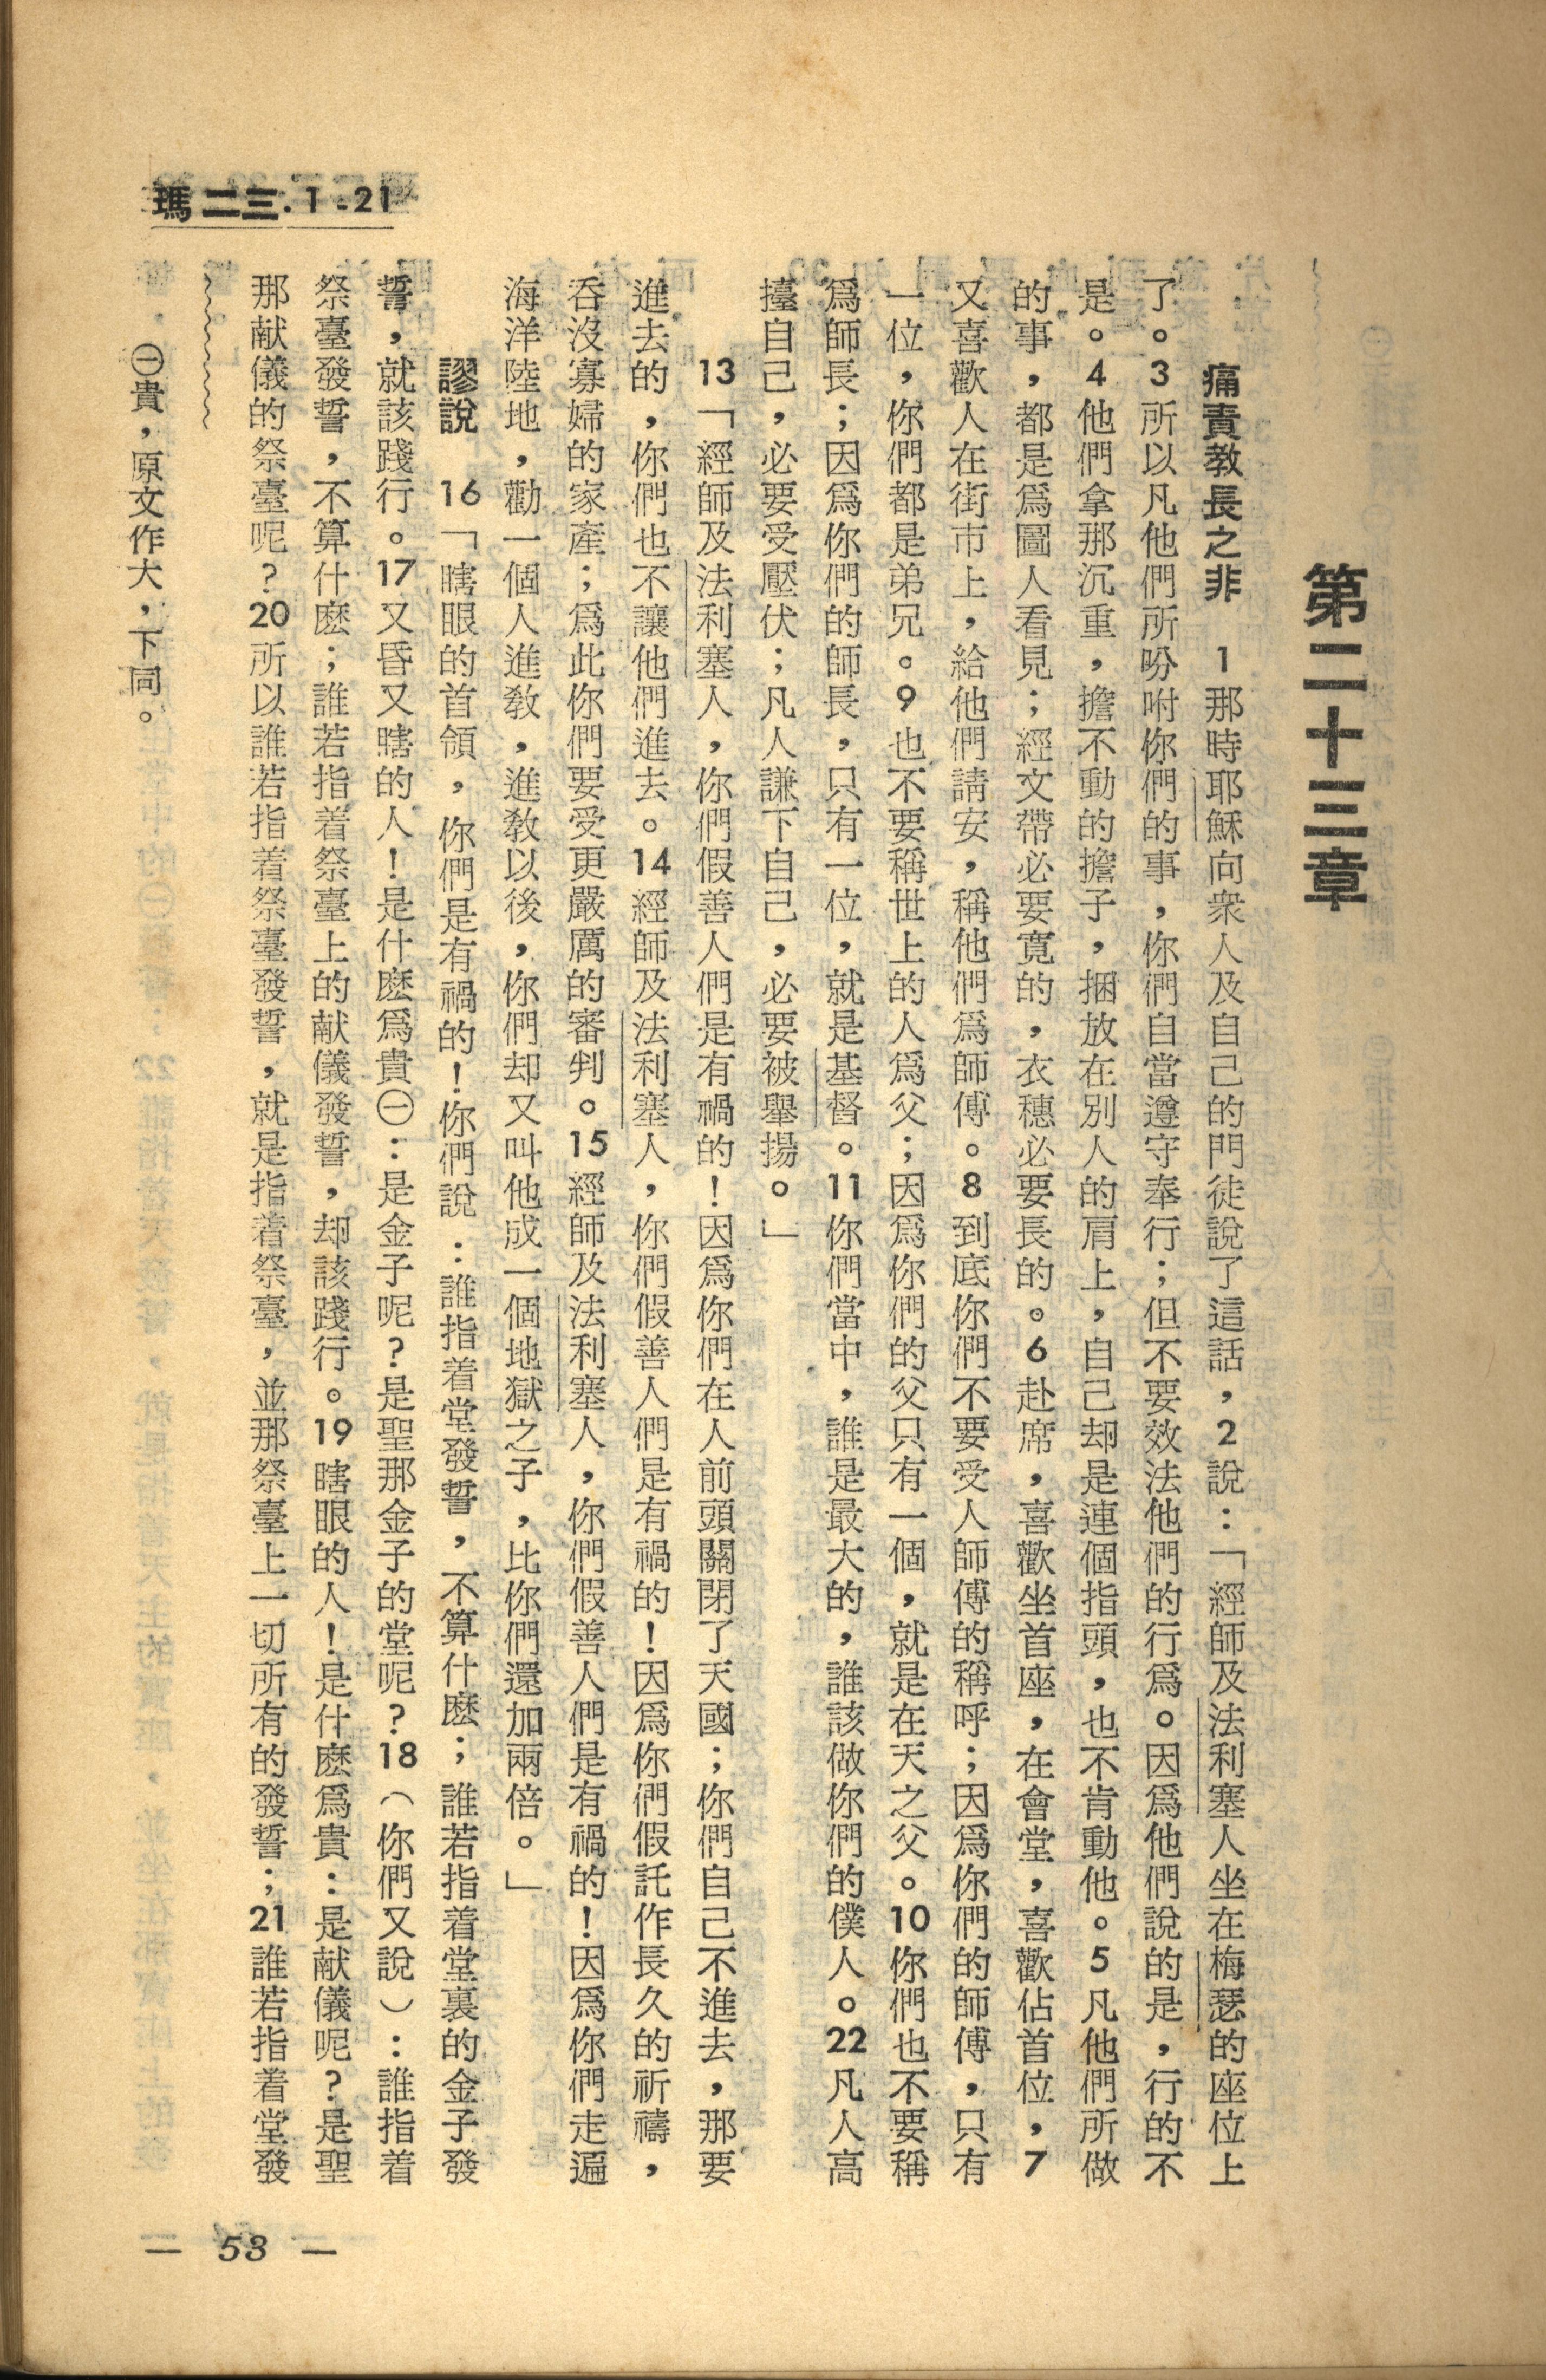 瑪二三.1-21
第二十三章
痛責教長之非　1那時耶穌向衆人及自己的門徒說了這話，2說：「經師及法利塞人坐在梅瑟的座位上
了。3所以凡他們所吩咐你們的事，你們自當遵守奉行；但不要效法他們的行爲。因爲他們說的是，行的不
是。4他們拿那沉重，擔不動的擔子，捆放在別人的肩上，自己却是連個指頭，也不肯動他。5凡他們所做
的事，都是爲圖人看見；經文帶必要寬的，衣穗必要長的。6赴席，喜歡坐首座，在會堂，喜歡佔首位，7
又喜歡人在街市上，給他們請安，稱他們爲師傅。8到底你們不要受人師傅的稱呼；因爲你們的師傅，只有
一位，你們都是弟兄。9也不要稱世上的人爲父；因爲你們的父只有一個，就是在天之父。10你們也不要稱
爲師長；因爲你們的師長，只有一位，就是基督。11你們當中，誰是最大的，誰該做你們的僕人。22凡人高
擡自己，必要受壓伏；凡人謙下自己，必要被舉揚。」
13「經師及法利塞人，你們假善人們是有禍的！因爲你們在人前頭關閉了天國；你們自己不進去，那要
進去的，你們也不讓他們進去。14經師及法利塞人，你們假善人們是有禍的！因爲你們假託作長久的祈禱，
吞沒寡婦的家產；爲此你們要受更嚴厲的審判。15經師及法利塞人，你們假善人們是有禍的！因爲你們走遍
海洋陸地，勸一個人進教，進教以後，你們却又叫他成一個地獄之子，比你們還加兩倍。」
謬說　16「瞎眼的首領，你們是有禍的！你們說：誰指着堂發誓，不算什麽；誰若指着堂裏的金子發
誓，就該踐行。17又昏又瞎的人！是什麽爲貴㊀：是金子呢？是聖那金子的堂呢？18（你們又說）：誰指着
祭臺發誓，不算什麽；誰若指着祭臺上的献儀發誓，却該踐行。19瞎眼的人！是什麽爲貴：是献儀呢？是聖
那献儀的祭臺呢？20所以誰若指着祭臺發誓，就是指着祭臺，並那祭臺上一切所有的發誓；21誰若指着堂發
㊀貴，原文作大，下同。
— 53 —